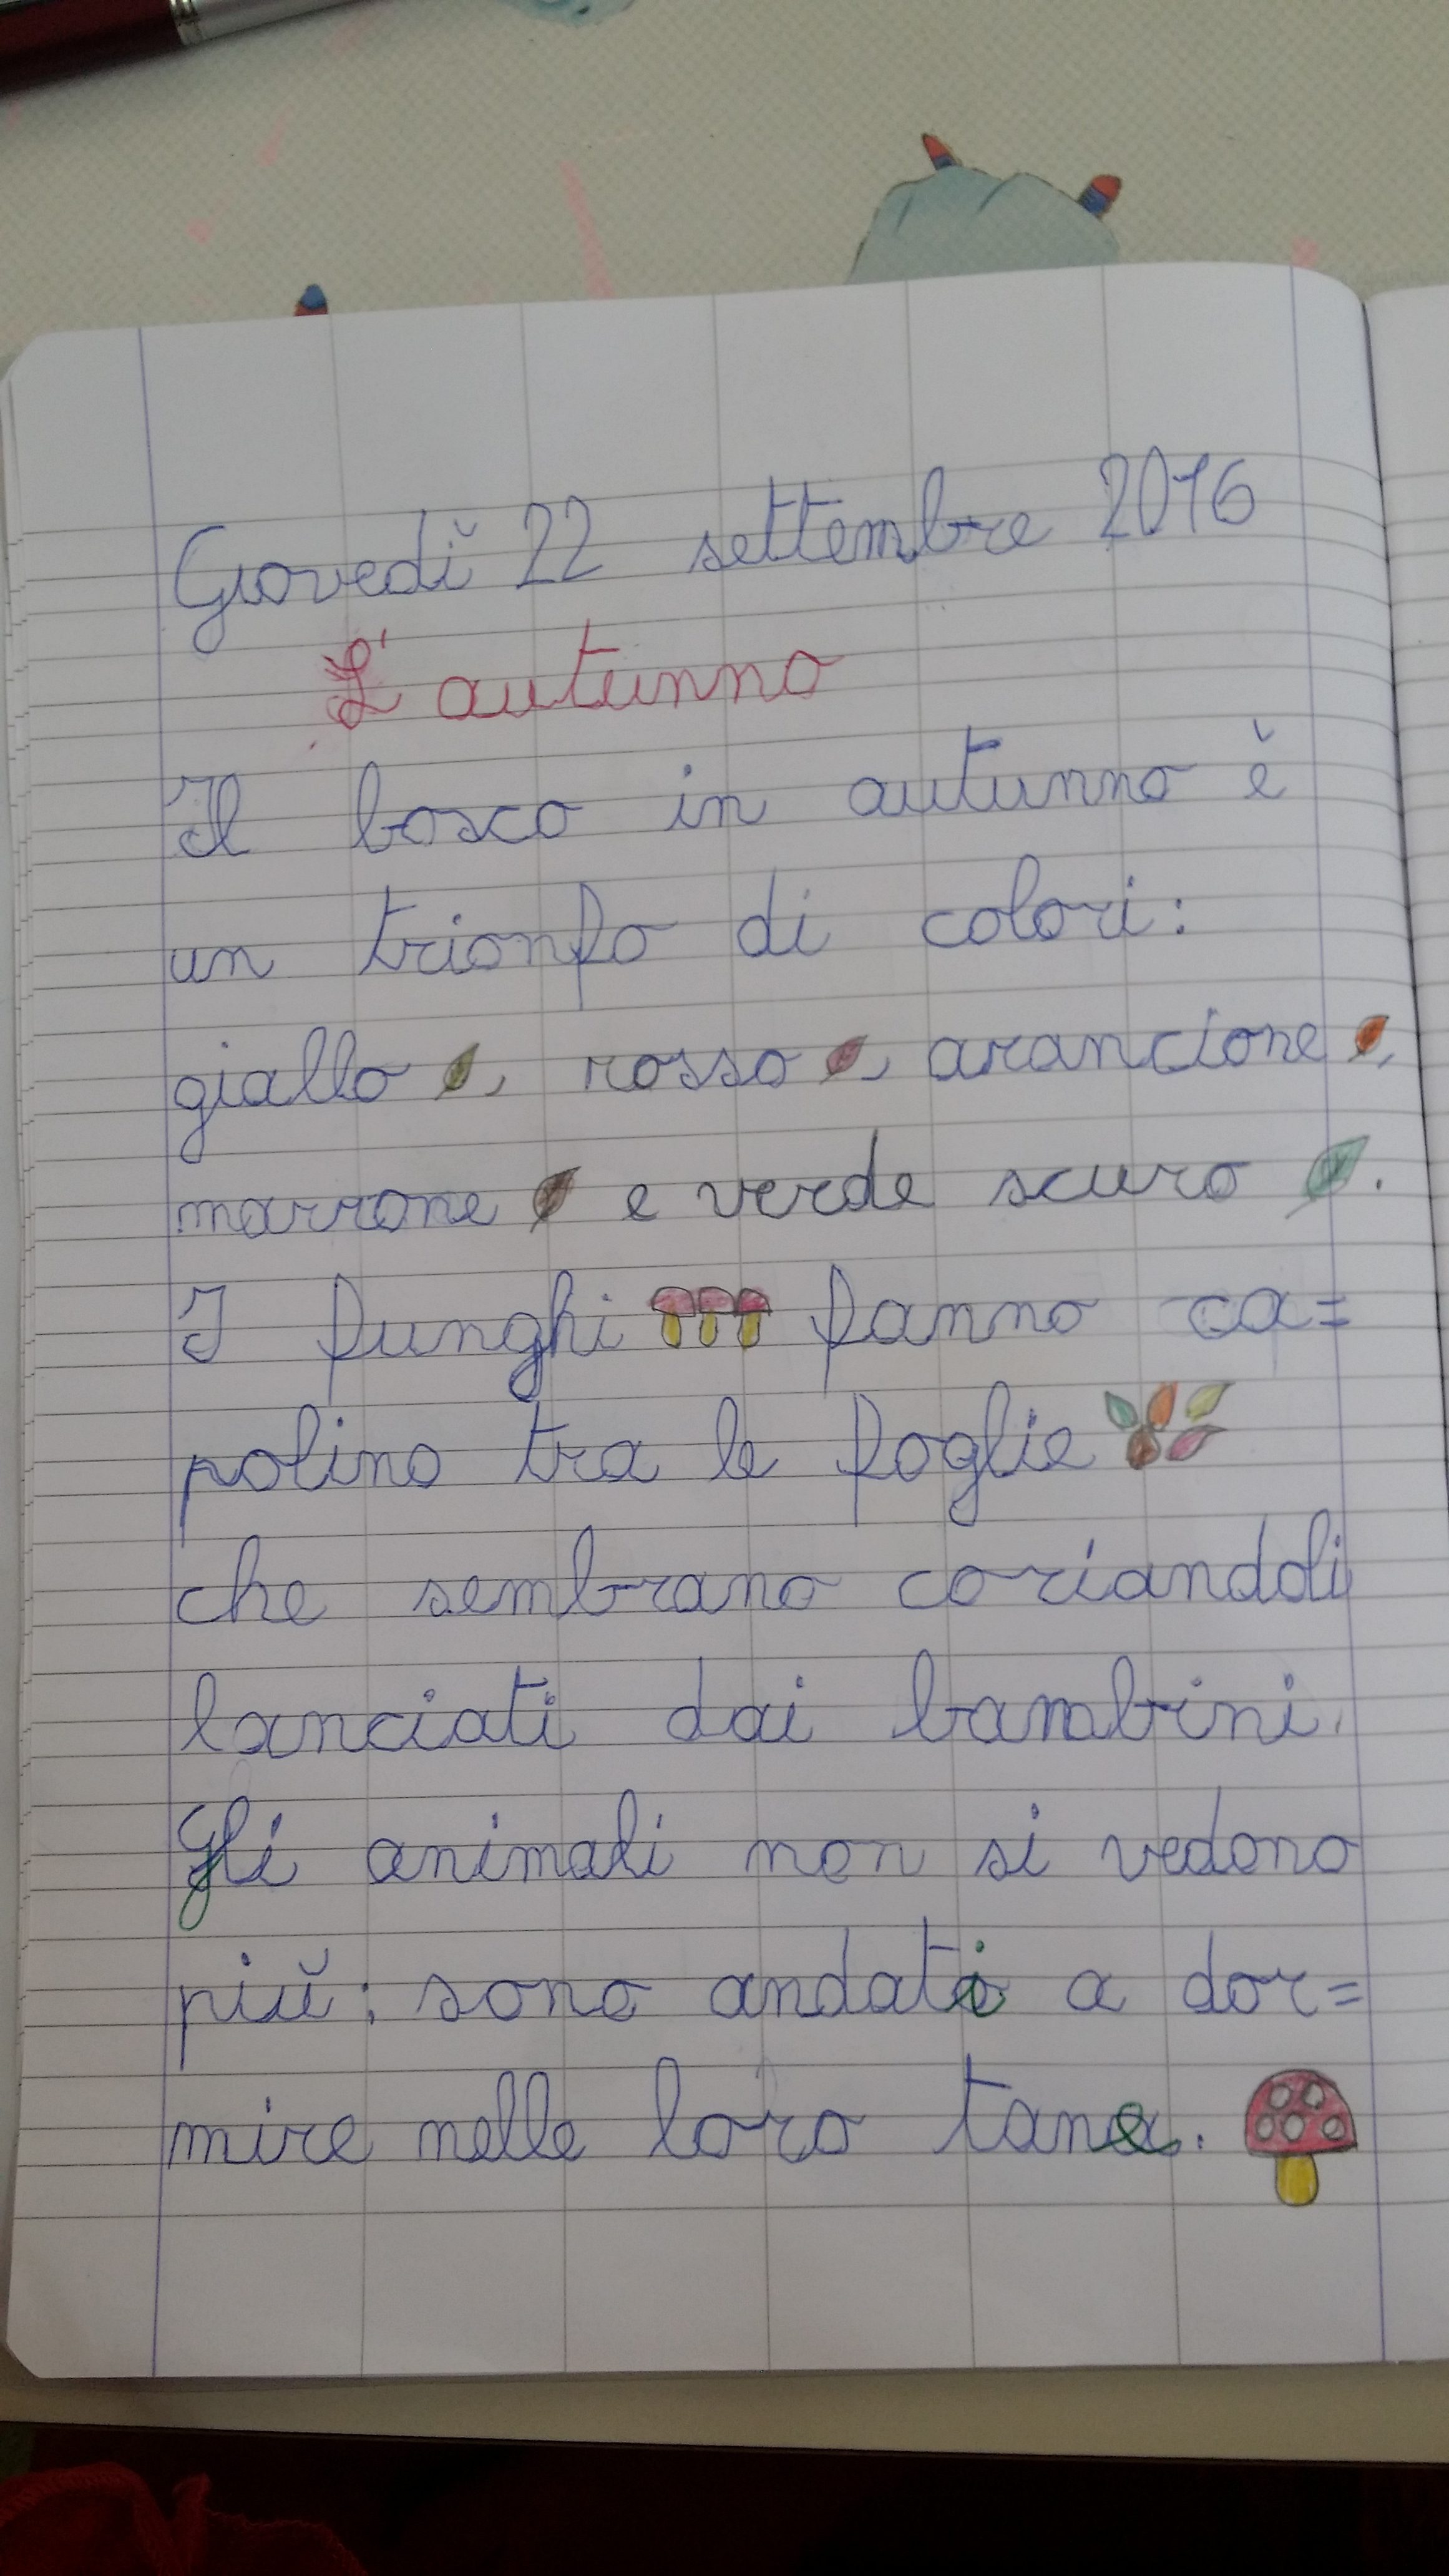 Giovedì 22 settembre 2016
L'autunno
Il bosco in autunno è
un trionfo di colori:
giallo, rosso, arancione,
marrone e verde scuro.
I funghi fanno ca=
polino tra le foglie
che sembrano coriandoli
lanciati dai bambini.
Gli animali non si vedono
più: sono andati a dor=
mire nelle loro tane.